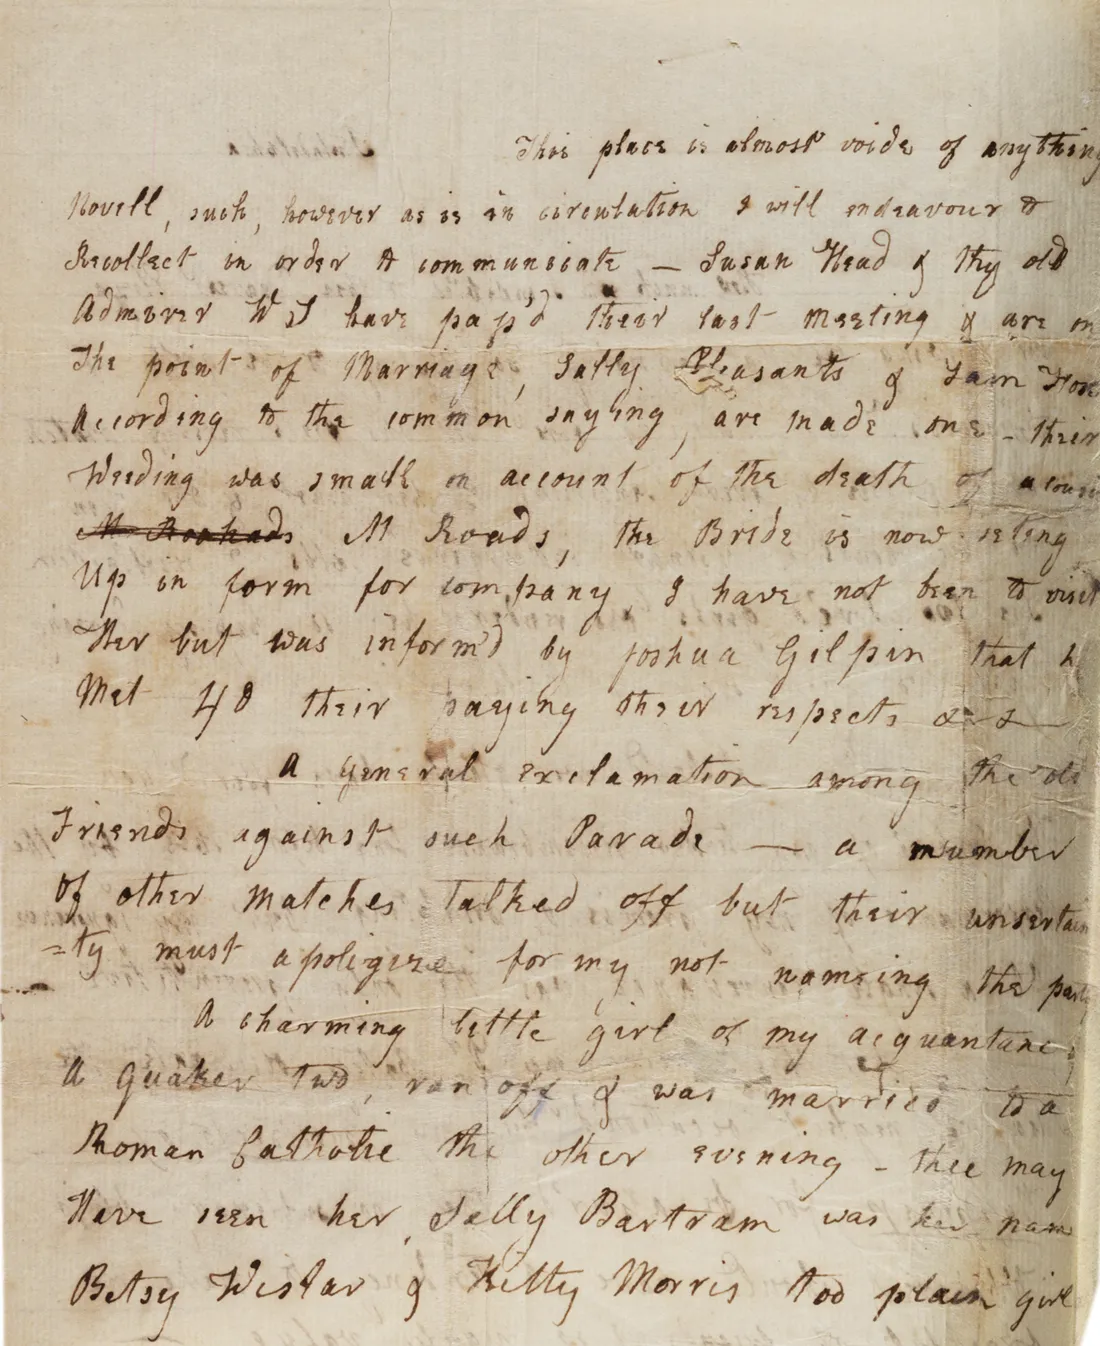 This place is almost voide of anything
Novell, such, however as is in circulation I will endeavour to
Recollect in order to communicate — Susan Head & thy old
Admirer W S have pap'd their last meeting & are on
The point of Marriage, Sally Pleasants & Sam
According to the common saying, are made one - their
Weeding was small on account of the death of a
M Roads, the Bride is now seting
Up in form for company, I have not been to visit
Her but was inform'd by Joshua Gilpin that h
Met 40 their paying their respects &c &
A general exclamation among the old
Friends against such Parade — a mumber
Of other matches talked off but their unsertain
=ty must apoligize for my not nameing the
A charming little girl of my acquantanc
A Quaker two, ran off & was married to a
Roman Catholic the other evening - thee may
Have seen her, Sally Bartram was her nam
Betsy Wistar & Kitty Morris too plain girl